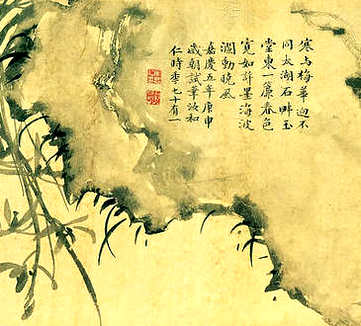 寒与梅華迥不
同太湖石畔玉
堂東一簾春色
寬如許墨海波
瀾動晚風
嘉慶五年庚申
歲朝試筆汝和
仁時季七十有一